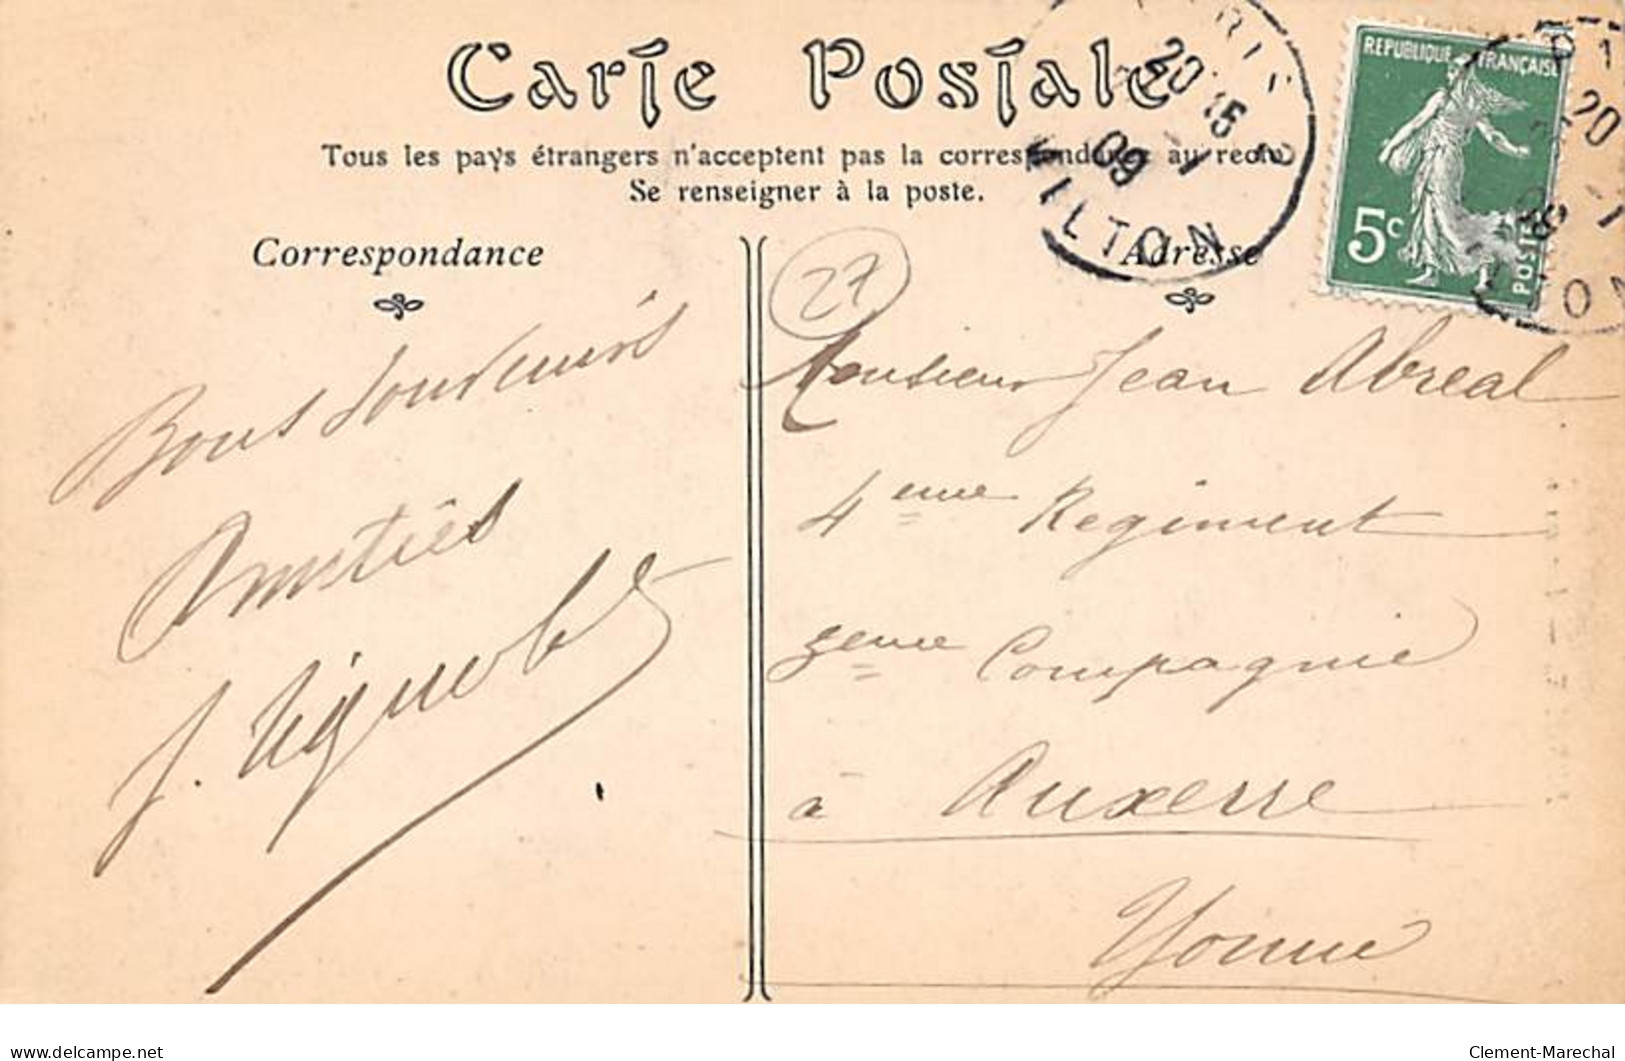 Carte Postale
Tous les pays étrangers n'acceptent pas la correspondance au recto
Se renseigner à la poste.
Correspondance
Bons souvenirs
Amitiés
J.
Adresse
27
Monsieur Jean Abreal
4eme Regiment
3eme Compagnie
à Auxerre
Yonne
REPUBLIQUE FRANÇAISE
5c
POSTES
20 15
-1
09
MILTON
20
-1
delcampe.net
Clement-Marechal